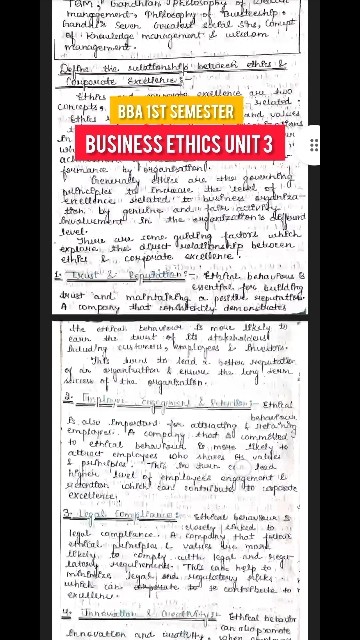 TQM, Gandhian Philosophy of Wealth
management, Philosophy of Trusteeship.
Gandhi's Seven Greatest Social Sins, Concept
of knowledge management & wisdom
management.
Define the relationship between ethics &
Corporate Excellence :-
Ethics excellence are two
concepts. related.
Ethics and values
BBA 1ST SEMESTER
BUSINESS ETHICS UNIT 3
formance by organisation.
Generally ethics are the governing
principles to increase the level of
excellence related to business organiza-
tion by genuine and fair activity
involvement in the organization's different
level.
There are some guiding factors which
explore the direct relationship between
ethics & corporate excellence.
1. Trust & Reputation :- Ethical behaviour is
essential for building
trust and maintaining a positive reputation.
A company that consistently demonstrates
the ethical behaviour is more likely to
earn the trust of its stakeholders
including customers, employees & investors.
This turn to lead a better reputation
of an organisation & ensure the long term
success of the organisation.
2. Employee Engagement & Retention :- Ethical
behaviour
is also important for attracting & retaining
employees. A company that is committed
to ethical behaviour is more likely to
attract employees who shares its values
& principles. This in turn can lead
higher level of employees engagement &
retention which can contribute to corporate
excellence.
3. Legal Compliance :- Ethical behaviour is
closely linked to
legal compliance. A company that follows
ethical principles & values are more
likely to comply with legal and regu-
latory requirements. This can help to
minimize legal and regulatory risks
which can to contribute to
excellence.
4. Innovation & Creativity :- Ethical behaviour
can also promote
innovation and creativity when employees